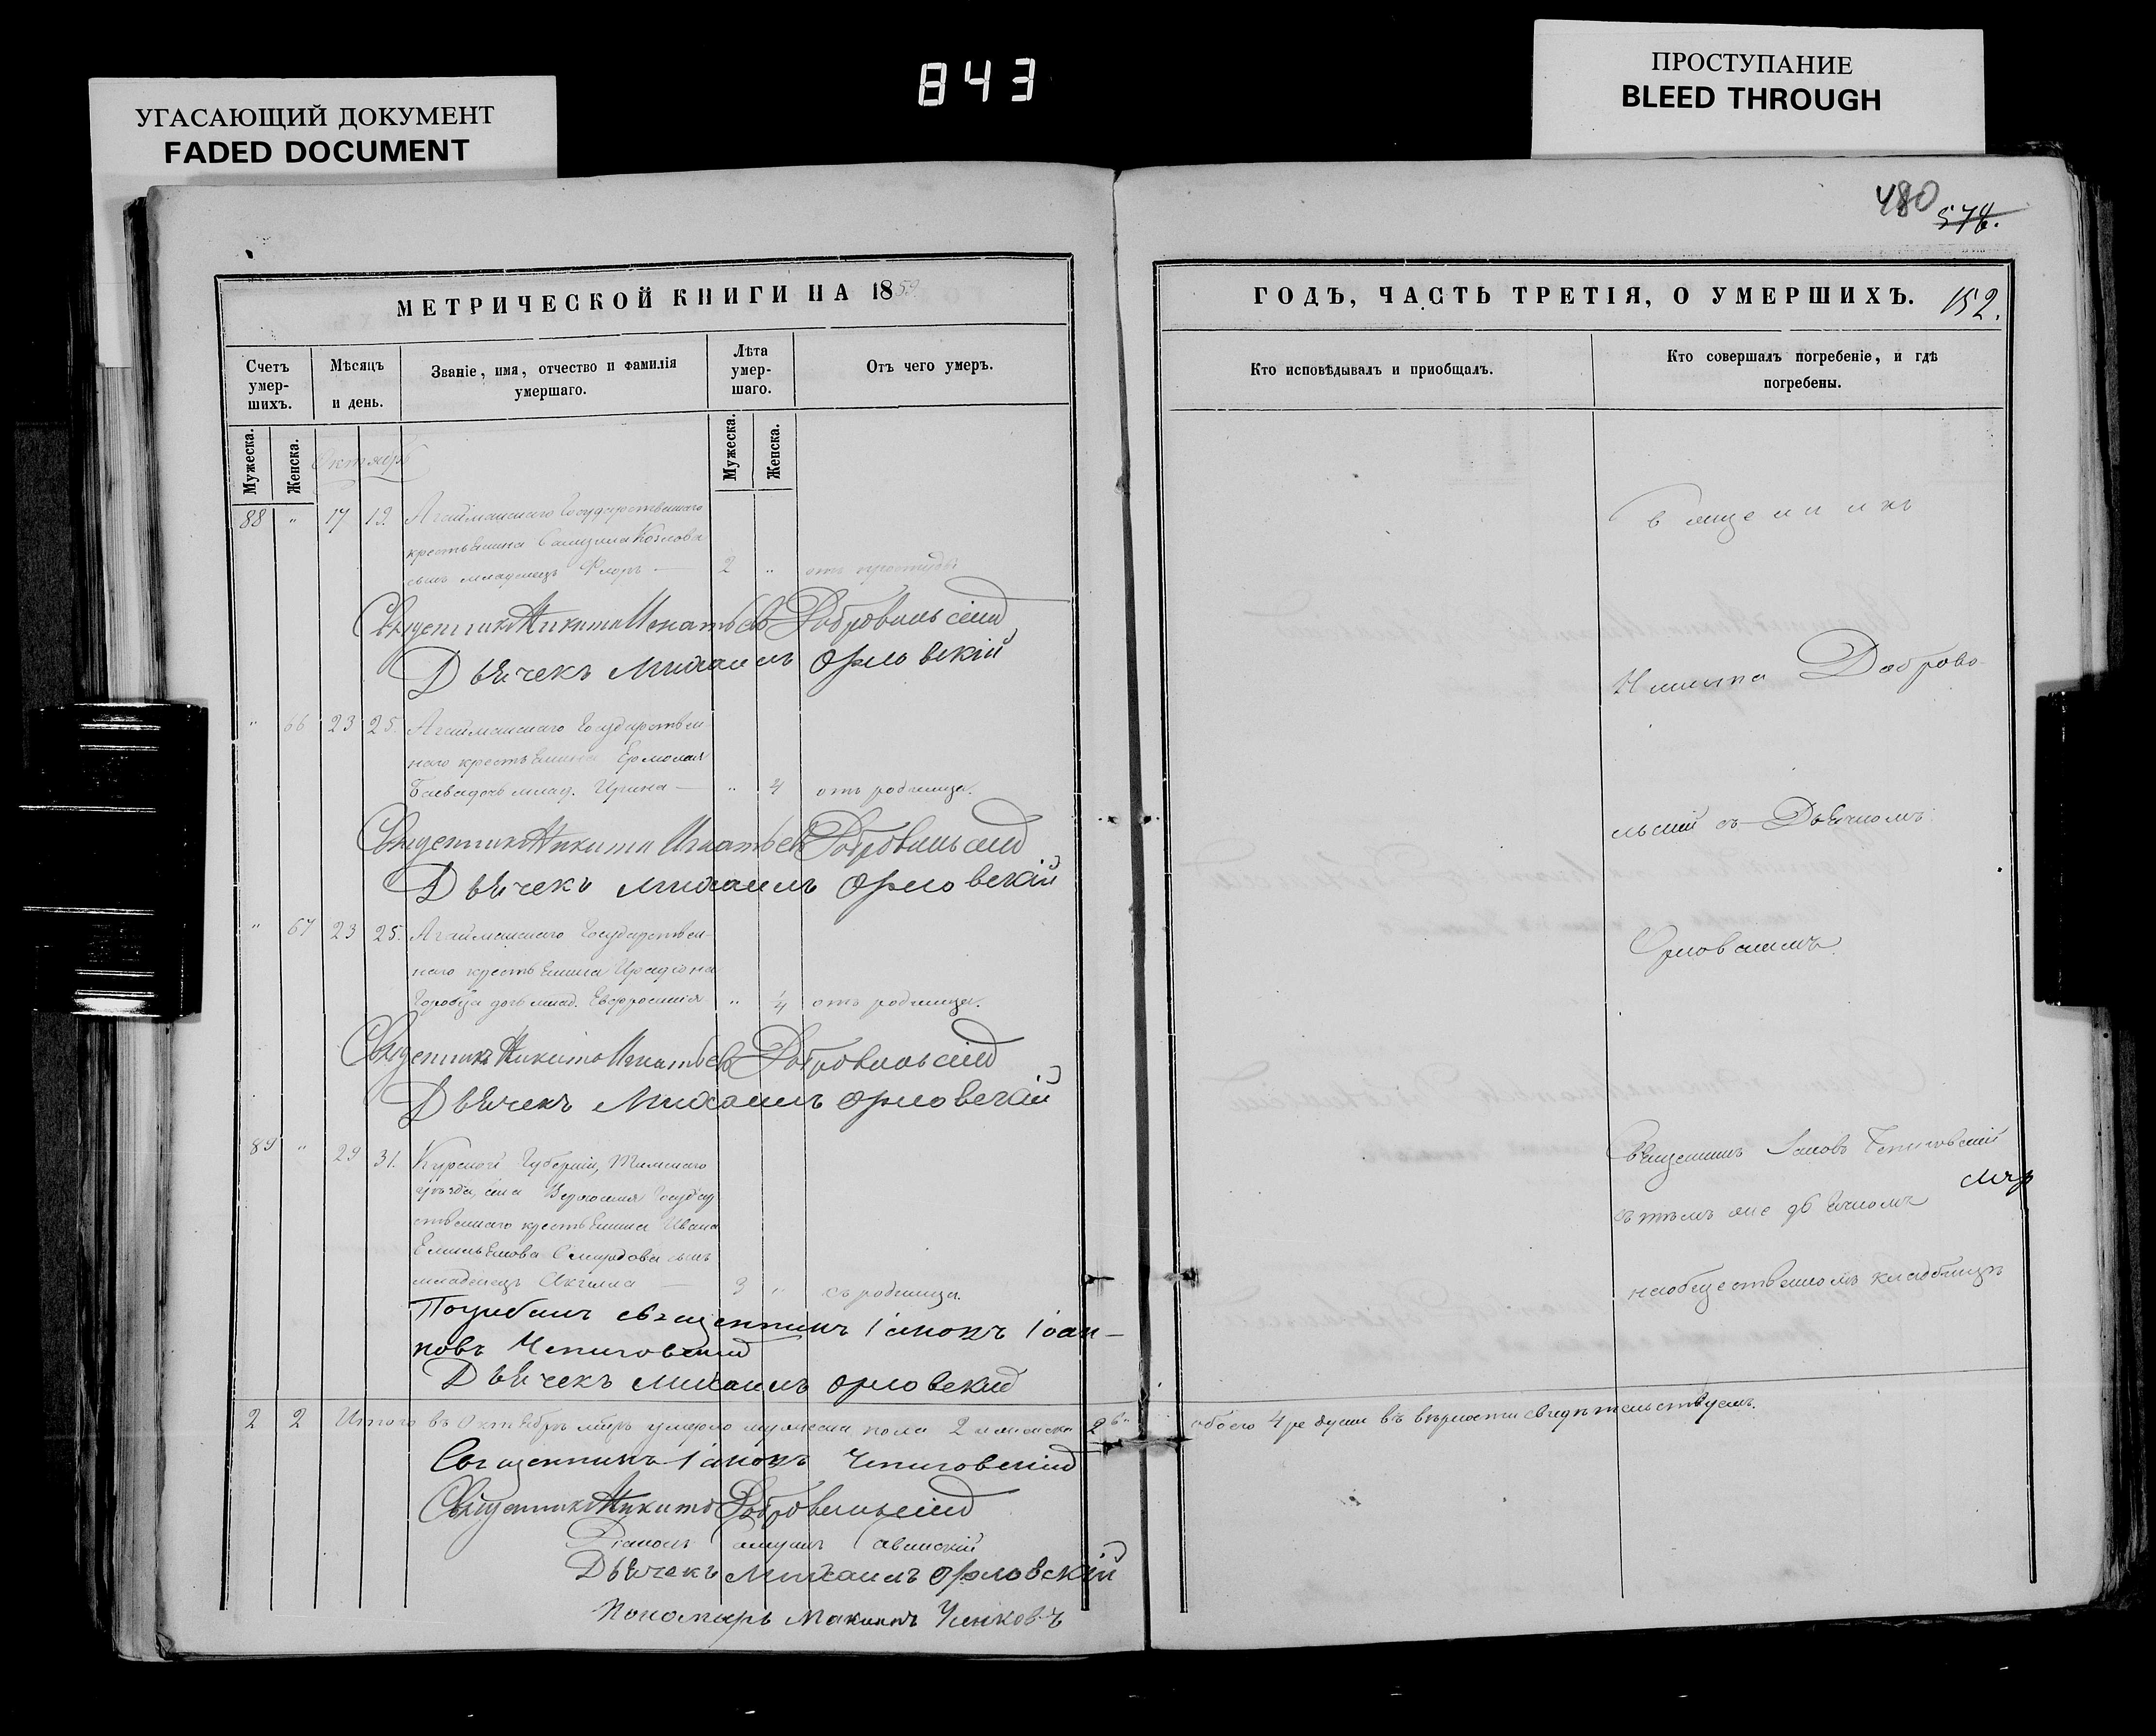 843
УГАСАЮЩИЙ ДОКУМЕНТ
FADED DOCUMENT
ПРОСТУПАНИЕ
BLEED THROUGH
480
574.
МЕТРИЧЕСКОЙ КНИГИ НА 1859
Счетъ умер-шихъ.
Мѣсяцъ и день.
Званіе, имя, отчество и фамилія умершаго.
Лѣта умер-шаго.
Отъ чего умеръ.
Мужеска.
Женска.
Мужеска.
Женска.
Октябрь
88 " 17 19. Агайманскаго Государственнаго
крестьянина Самуила Козлова
сынъ младенецъ Флоръ — 2 " отъ простуды
Священникъ Никита Игнатьевъ Добровольскій
Дьячекъ Михаилъ Орловскій
" 66 23 25. Агайманскаго Государствен
наго крестьянина Ермолая
дочь млад. Ирина — " 4 отъ родимца.
Священникъ Никита Игнатьевъ Добровольскій
Дьячекъ Михаилъ Орловскій
" 67 23 25. Агайманскаго Государствен-
наго крестьянина Иродіона
Горобца дочь млад. Евфросинія " 1/4 отъ родимца.
Священникъ Никита Игнатьевъ Добровольскій
Дьячекъ Михаилъ Орловскій
89 " 29 31. Курской Губерніи, Тимскаго
уѣзда, села Государ
ственнаго крестьянина Ивана
Емельянова сынъ
младенецъ Акилла — 3 " съ родимца.
Погребалъ священникъ Іаковъ Іоан-
новъ Чепиговскій
Дьячекъ Михаилъ Орловскій
2 2 Итого въ Октябрѣ мцѣ умерло мужеска пола 2 и женска 2
Священникъ Іаковъ Чепиговскій
Священникъ Никита Добровольскій
Діаконъ Савинскій
Дьячекъ Михаилъ Орловскій
Пономарь
ГОДЪ, ЧАСТЬ ТРЕТІЯ, О УМЕРШИХЪ.
152.
Кто исповѣдывалъ и приобщалъ.
Кто совершалъ погребеніе, и гдѣ погребены.
Священникъ
Никита Доброво-
льскій съ Дьячкомъ
Орловскимъ
Священникъ Іаковъ Чепиговскій
съ тѣмъ же дьячкомъ
на общественномъ кладбищѣ
обоего 4ре души въ вѣрности свидѣтельствуемъ.